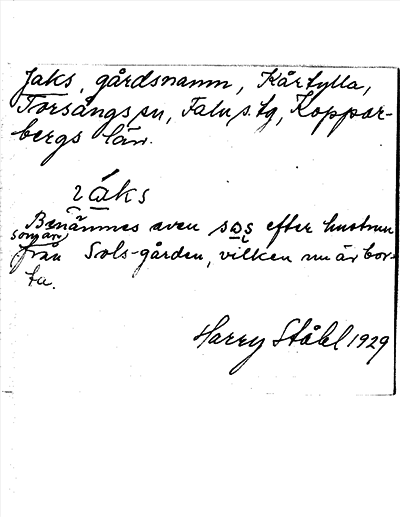 Jaks, gårdsnamn, Kårtylla,
Torsångs sn, Falu s. tg, Koppar-
bergs län.
Benämnes även sos efter hustrun
som är
från Sols-gården, vilken nu är bor-
ta.
Harry Ståhl 1929